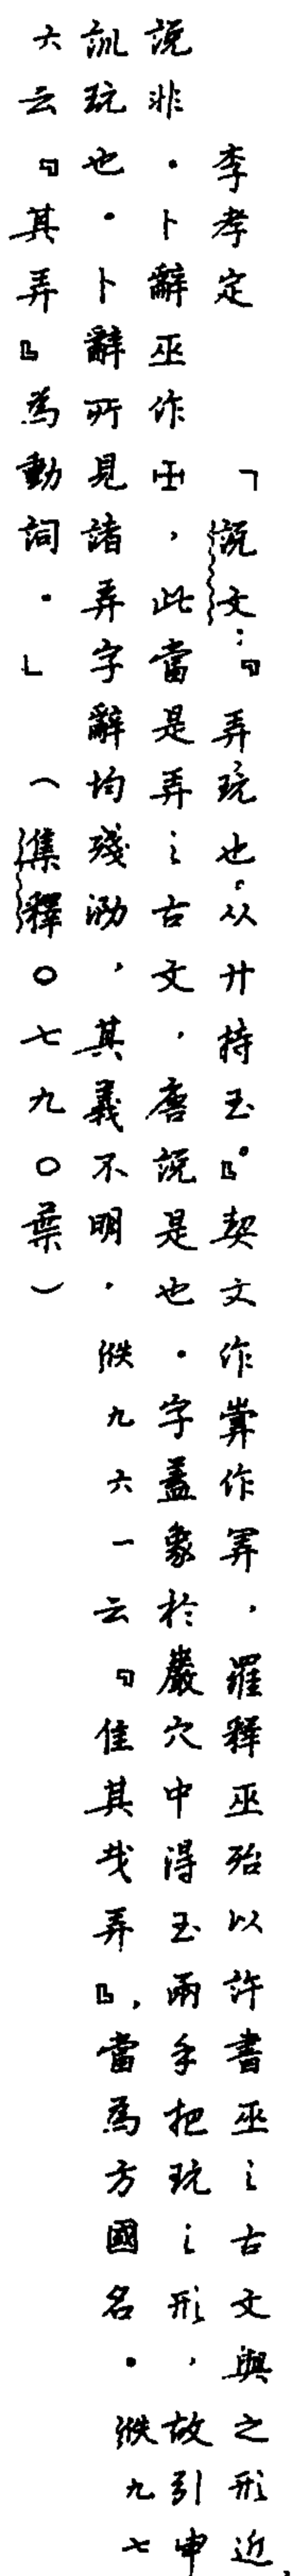 李孝定 「說文:『弄玩也。从廾持玉。』契文作作,羅釋巫殆以許書巫之古文與之形近,
說非。卜辭巫作,此當是弄之古文,唐說是也。字蓋象於巖穴中得玉兩手把玩之形,故引申
訓玩也。卜辭所見諸弄字辭均殘泐,其義不明。九六一云『隹其弄』,當為方國名。九七
六云『其弄』為動詞。」(集釋○七九○葉)